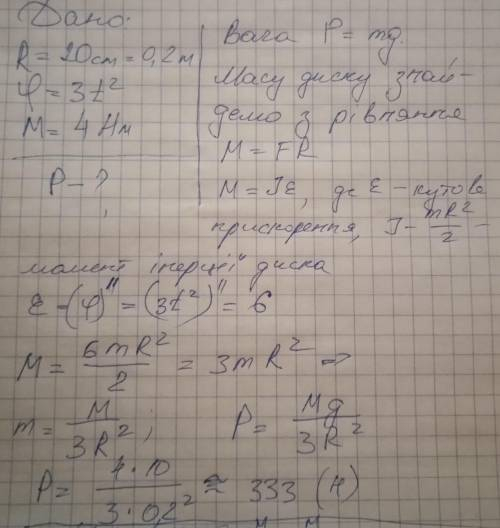 Дано:
R = 20см = 0,2м
φ = 3t²
M = 4 Нм
P - ?
Вага P = mg.
Масу диску знай-
демо з рівняння
M = FR
M = Jε, де ε - кутове
прискорення, J - mR²/2 -
момент інерції диска
ε - (φ)'' = (3t²)'' = 6
M = 6mR²/2 = 3mR² ⇒
m = M/3R²; P = Mg/3R²
P = 4·10/3·0,2² ≈ 333 (Н)